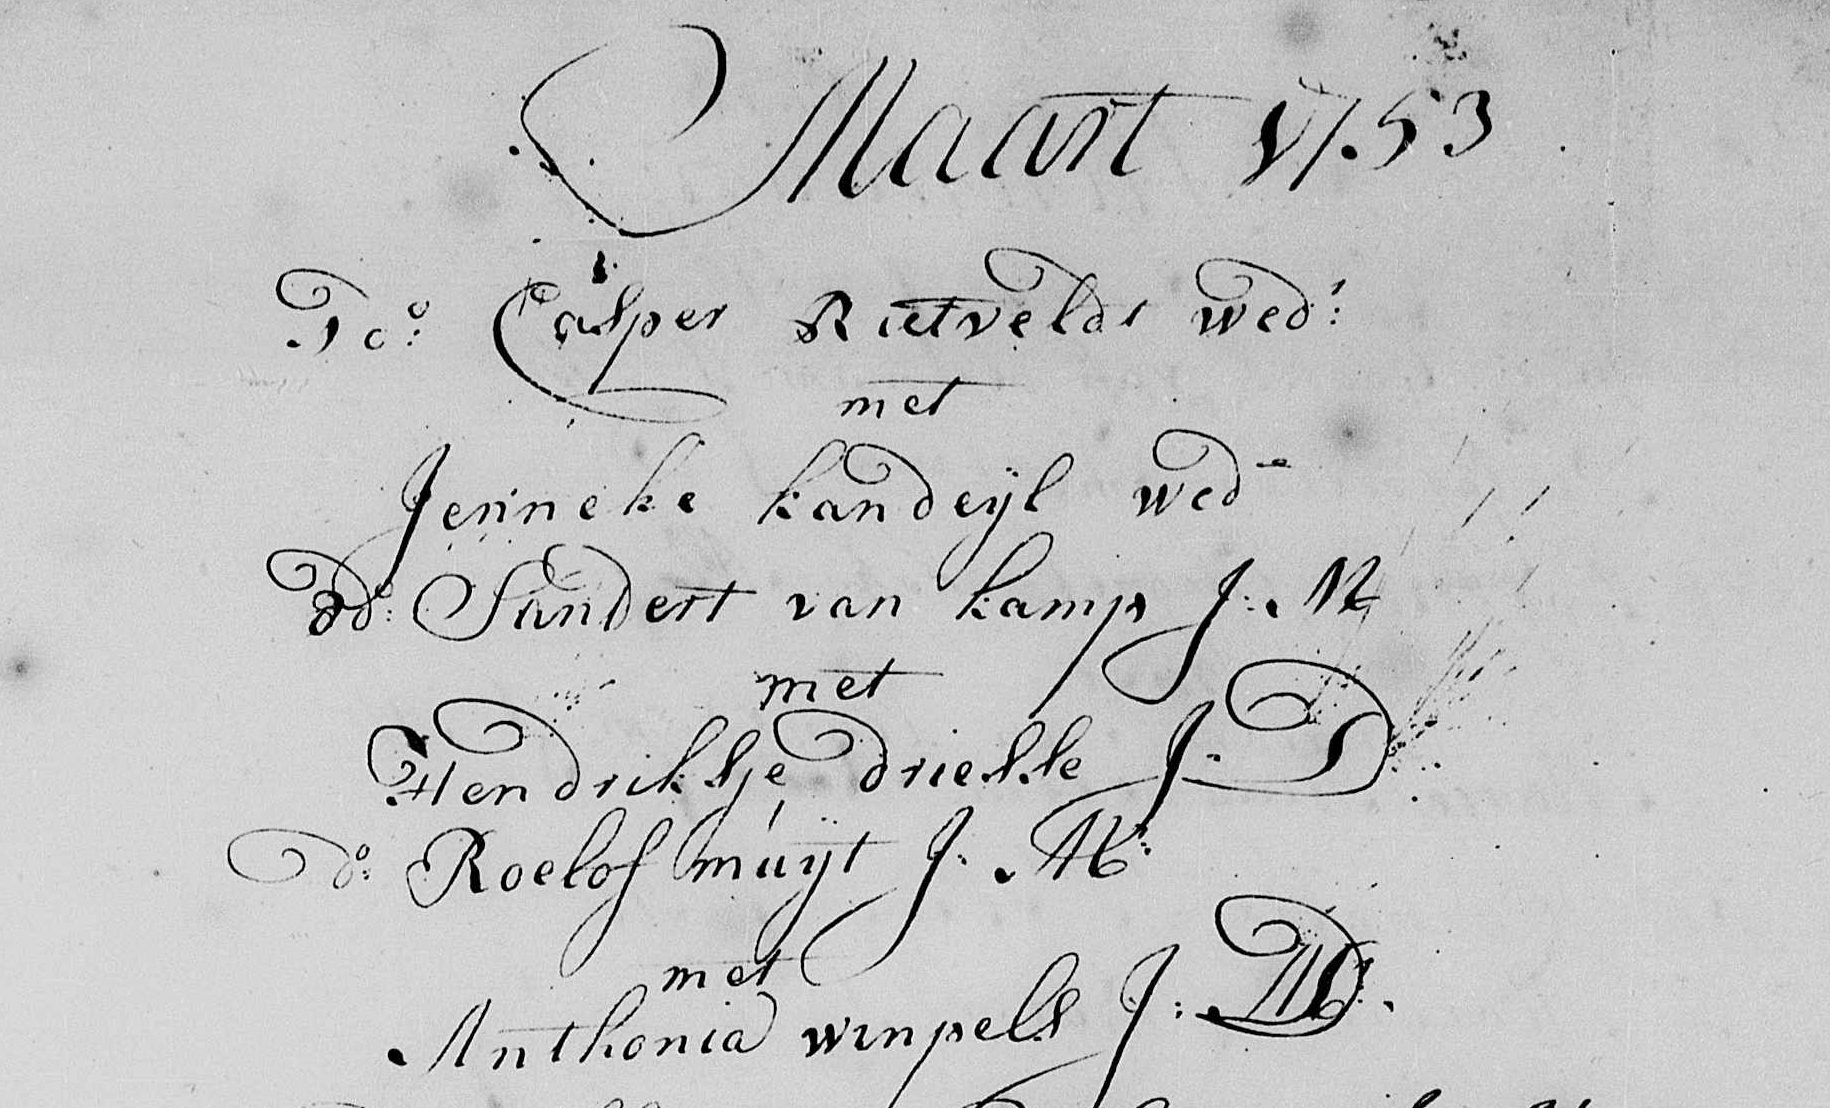 Maart 1753
Do: Casper Rietveldt wedr:
met
Jenneke kandeijl wede
do: Sandert van kamp J: M
met
Hendriksje driesse J: D
do: Roelof muijt J: M:
met
Anthonia winpels J: D: